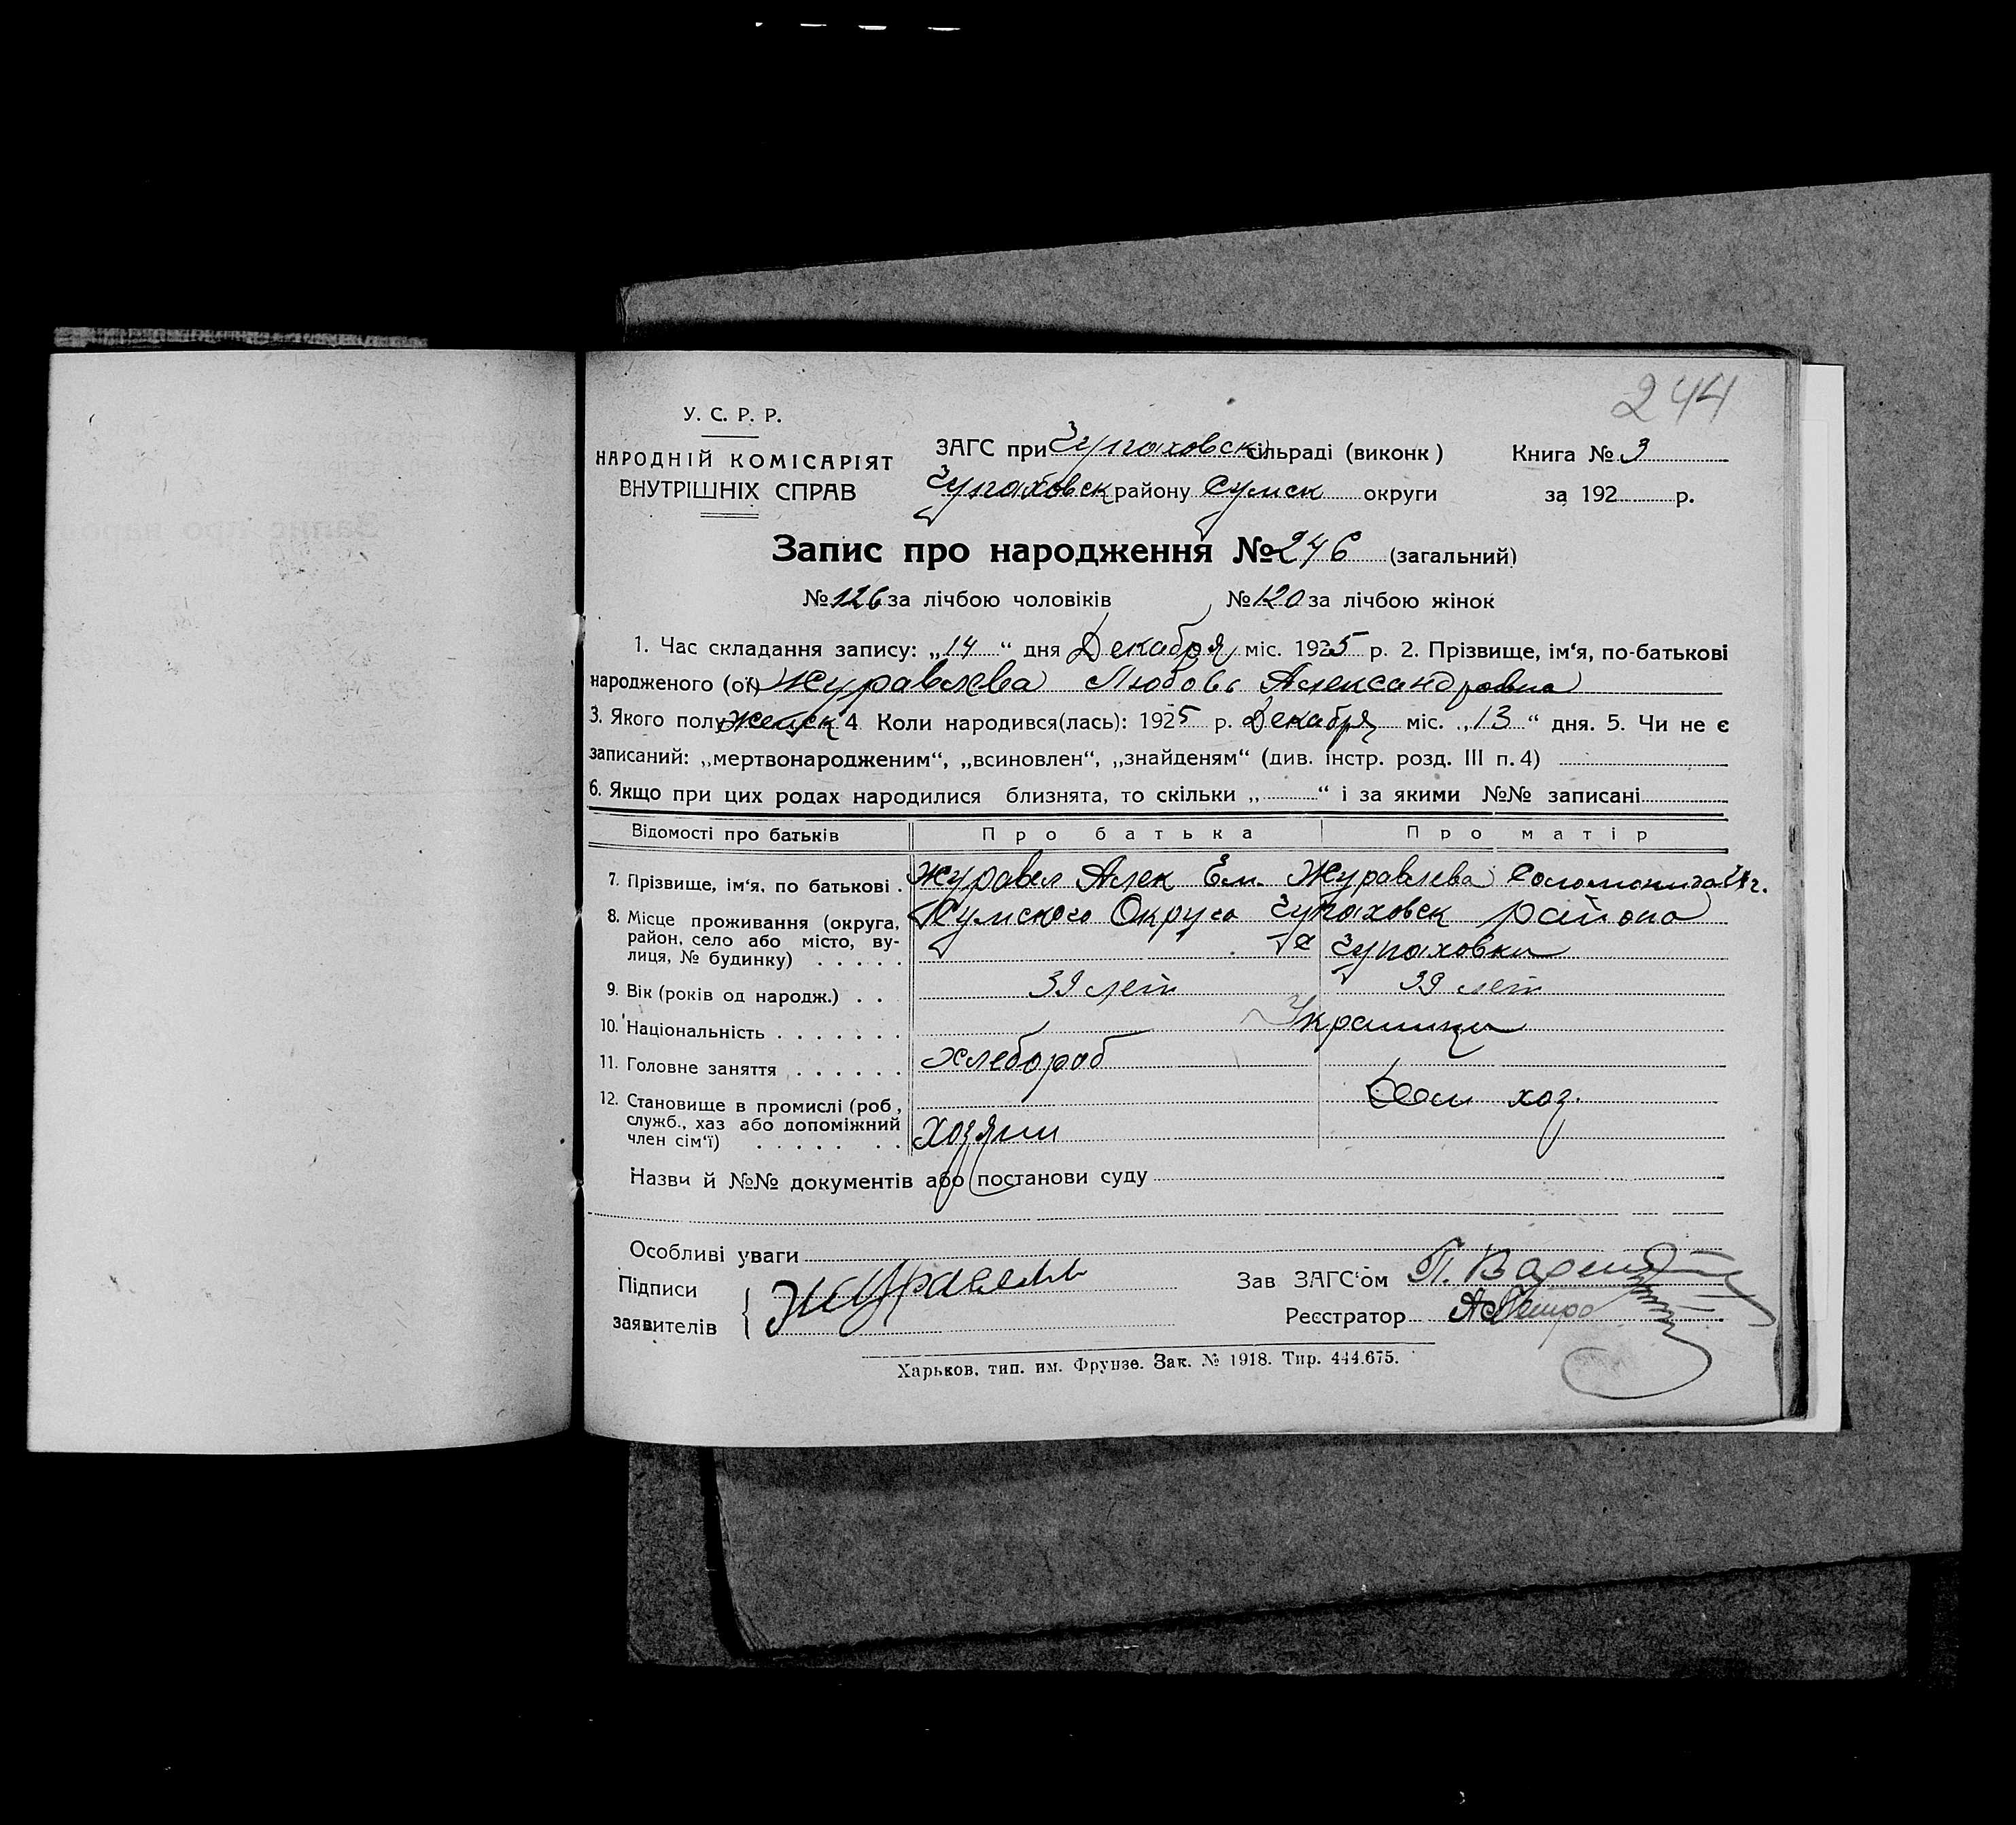 244
У. С. Р. Р.
НАРОДНІЙ КОМІСАРІЯТ
ВНУТРІШНІХ СПРАВ
ЗАГС при Чупаховск сільраді (виконк)
Чупаховск району Сумск округи
Книга № 3
за 192 р.
Запис про народження № 246 (загальний)
№ 126 за лічбою чоловіків № 120 за лічбою жінок
1. Час складання запису: „14“ дня Декабря міс. 1925 р. 2. Прізвище, ім‘я, по-батькові
народженого (ої) Журавлева Любовь Александровна
3. Якого полу Женск 4 Коли народився(лась): 1925 р. Декабря міс. „13“ дня. 5. Чи не є
записаний: „мертвонародженим“, „всиновлен“, „знайденям“ (див. інстр. розд. III п. 4)
6. Якщо при цих родах народилися близнята, то скільки „ “ і за якими №№ записані
Відомості про батьків Про батька Про матір
7. Прізвище, ім‘я, по батькові . Журавел Алек Ем. Журавлева
8. Місце проживання (округа, район, село або місто, вулиця, № будинку) . . . . . Сумского Округа Чупаховск района
Чупаховки
9. Вік (років од народж.) . . 39 лет 39 лет
10. Національність . . . . . . . Украинцы
11. Головне заняття . . . . . . хлебороб
12. Становище в промислі (роб, служб., хаз або допоміжний член сім‘ї) . . . . . . . Хозяин
Дом хоз.
Назви й №№ документів або постанови суду
Особливі уваги
Підписи
заявителів { Журавель
Зав ЗАГС‘ом П.
Реєстратор
Харьков, тип. им. Фрунзе. Зак. № 1918. Тир. 444.675.